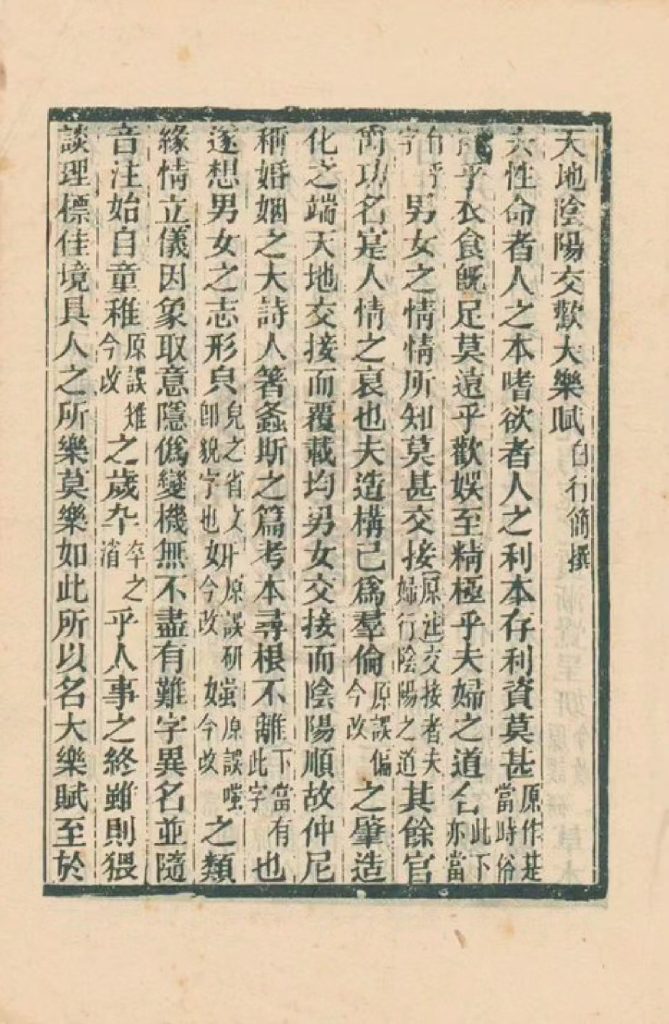 天地陰陽交歡大樂賦 白行簡撰
夫性命者人之本嗜欲者人之利本存利資莫甚 原作 當時俗
字 乎衣食旣足莫遠乎歡娛至精極乎夫婦之道合 此下亦當
有乎字 男女之情情所知莫甚交接 原注交接者夫婦行陰陽之道 其餘官
爵功名寔人情之衰也夫造構已爲羣倫 原誤偏今改 之肇造
化之端天地交接而覆載均男女交接而陰陽順故仲尼
稱婚姻之大詩人著螽斯之篇考本尋根不離 下當有此字 也
遂想男女之志形㒵 皃之省文卽貌字也 妍 原誤研今改 媸 原誤嗤今改 之類
緣情立儀因象取意隱僞變機無不盡有難字異名並隨
音注始自童稚 原誤雉今改 之歲卆 卒之省 乎人事之終雖則猥
談理標佳境具人之所樂莫樂如此所以名大樂賦至於